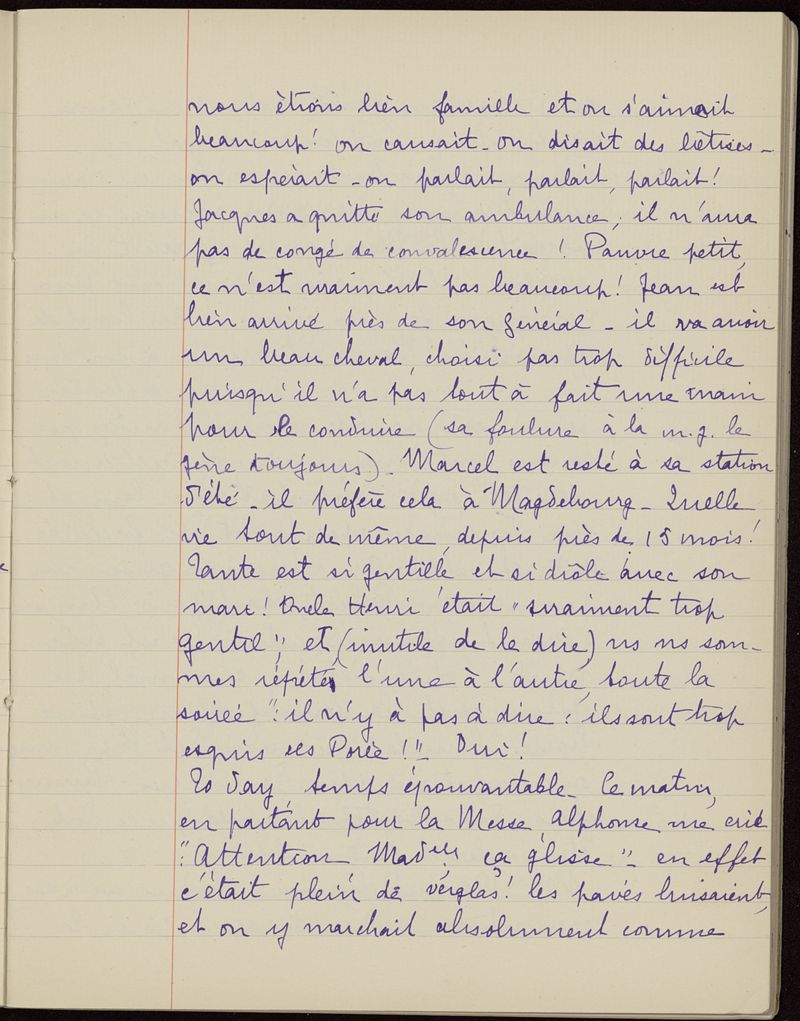 nous étions bien famille et on s'aimait
beaucoup! on causait - on disait des bêtises -
on espérait - on parlait, parlait, parlait!
Jacques a quitté son ambulance, il n'aura
pas de congé de convalescence! Pauvre petit,
ce n'est vraiment pas beaucoup! Jean est
bien arrivé près de son général - il va avoir
un beau cheval, choisi pas trop difficile
puisqu'il n'a pas tout à fait une main
pour le conduire (sa foulure à la m. g. le
gène toujours). Marcel est resté à sa station
d'été - il préfère cela à Magdebourg - Quelle
vie tout de même, depuis près de 15 mois!
Tante est si gentille et si drôle avec son
mari! Oncle Henri était "vraiment trop
gentil", et (inutile de le dire) ns ns som-
mes répété l'une à l'autre, toute la
soirée ": il n'y à pas à dire: ils sont trop
exquis ces Porée!" - Oui!
To day temps épouvantable - Ce matin,
en partant pour la Messe, Alphonse me crie
"Attention Madelle ça glisse" - en effet
c'était plein de verglas! les pavés luisaient,
et on y marchait absolument comme